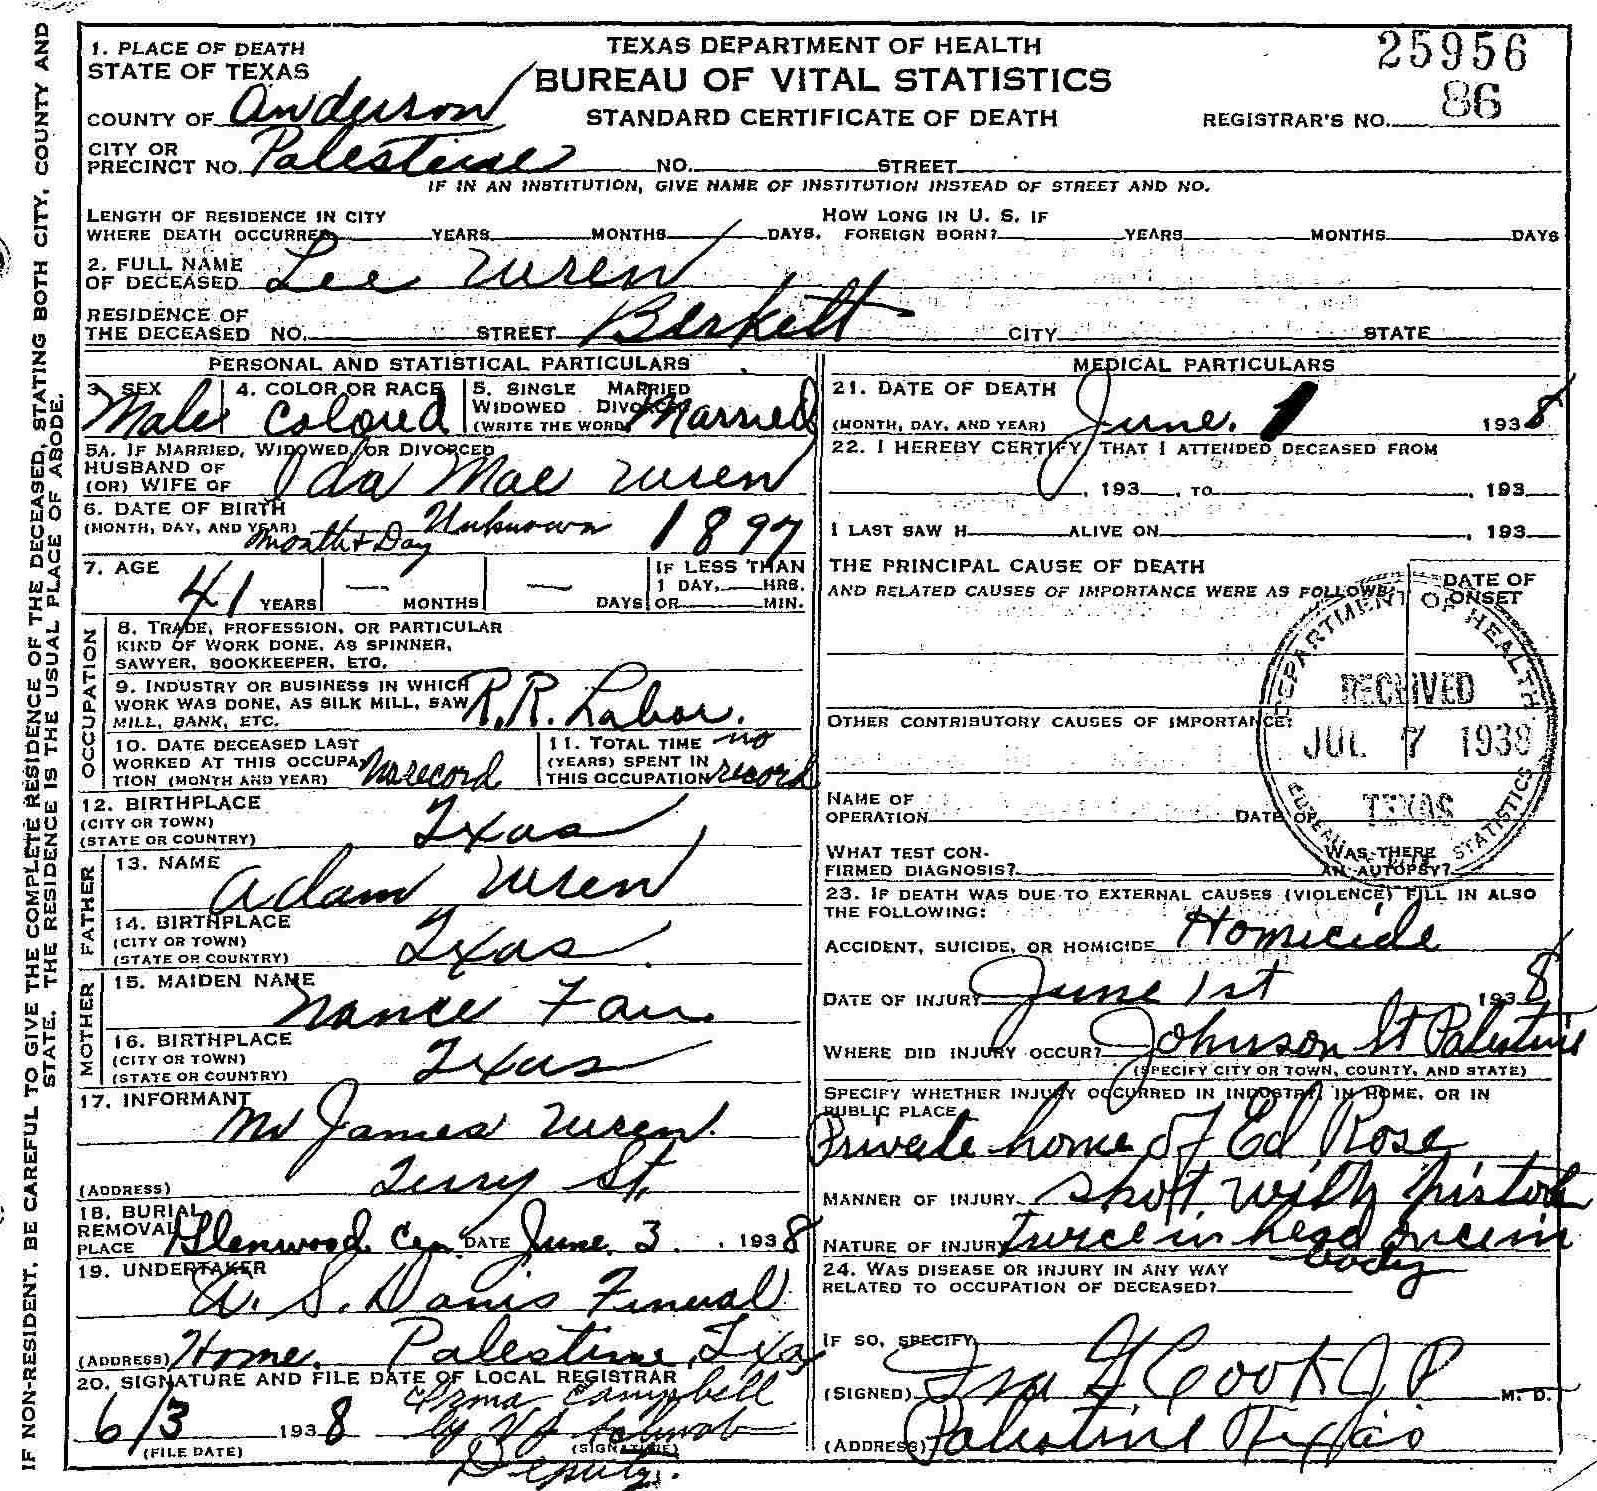 IF NON-RESIDENT, BE CAREFUL TO GIVE THE COMPLETE RESIDENCE OF THE DECEASED, STATING BOTH CITY, COUNTY AND
STATE. THE RESIDENCE IS THE USUAL PLACE OF ABODE.
1. PLACE OF DEATH
STATE OF TEXAS
COUNTY OF Anderson
CITY OR
PRECINCT NO. Palestine NO. STREET
TEXAS DEPARTMENT OF HEALTH
BUREAU OF VITAL STATISTICS
STANDARD CERTIFICATE OF DEATH
25956
REGISTRAR'S NO. 86
IF IN AN INSTITUTION, GIVE NAME OF INSTITUTION INSTEAD OF STREET AND NO.
LENGTH OF RESIDENCE IN CITY
WHERE DEATH OCCURRED YEARS MONTHS DAYS.
HOW LONG IN U. S. IF
FOREIGN BORN? YEARS MONTHS DAYS
2. FULL NAME
OF DECEASED Lee Wren
RESIDENCE OF
THE DECEASED NO. STREET CITY STATE
PERSONAL AND STATISTICAL PARTICULARS
3. SEX
Male
4. COLOR OR RACE
Colored
5. SINGLE MARRIED
WIDOWED DIVORCED
(WRITE THE WORD) Married
5A. IF MARRIED, WIDOWED, OR DIVORCED
HUSBAND OF
(OR) WIFE OF Ida Mae Wren
6. DATE OF BIRTH
(MONTH, DAY, AND YEAR) Month + Day Unknown 1897
7. AGE
41 YEARS — MONTHS — DAYS
IF LESS THAN
1 DAY, HRS.
OR MIN.
OCCUPATION
8. TRADE, PROFESSION, OR PARTICULAR
KIND OF WORK DONE, AS SPINNER,
SAWYER, BOOKKEEPER, ETC.
9. INDUSTRY OR BUSINESS IN WHICH
WORK WAS DONE, AS SILK MILL, SAW
MILL, BANK, ETC. R.R. Labor.
10. DATE DECEASED LAST
WORKED AT THIS OCCUPA-
TION (MONTH AND YEAR) No record
11. TOTAL TIME no
(YEARS) SPENT IN
THIS OCCUPATION record
12. BIRTHPLACE
(CITY OR TOWN)
(STATE OR COUNTRY) Texas
FATHER
13. NAME
Adam Wren
14. BIRTHPLACE
(CITY OR TOWN)
(STATE OR COUNTRY) Texas
MOTHER
15. MAIDEN NAME
16. BIRTHPLACE
(CITY OR TOWN)
(STATE OR COUNTRY) Texas
17. INFORMANT
James Wren.
(ADDRESS) Terry St.
18. BURIAL
REMOVAL
PLACE Glenwood Cem. DATE June. 3, 1938
19. UNDERTAKER
A. S. Davis Funeral
(ADDRESS) Home. Palestine, Texas
20. SIGNATURE AND FILE DATE OF LOCAL REGISTRAR
Irma Campbell
6/3 1938
(FILE DATE)
(SIGNATURE)
Deputy.
MEDICAL PARTICULARS
21. DATE OF DEATH
(MONTH, DAY, AND YEAR) June. 1 1938
22. I HEREBY CERTIFY, THAT I ATTENDED DECEASED FROM
, 193 , TO , 193
I LAST SAW H ALIVE ON , 193
THE PRINCIPAL CAUSE OF DEATH
AND RELATED CAUSES OF IMPORTANCE WERE AS FOLLOWS:
DATE OF
ONSET
DEPARTMENT OF HEALTH
RECEIVED
JUL 7 1938
TEXAS
BUREAU VITAL STATISTICS
OTHER CONTRIBUTORY CAUSES OF IMPORTANCE:
NAME OF
OPERATION DATE OF
WHAT TEST CON-
FIRMED DIAGNOSIS?
WAS THERE
AN AUTOPSY?
23. IF DEATH WAS DUE TO EXTERNAL CAUSES (VIOLENCE) FILL IN ALSO
THE FOLLOWING:
ACCIDENT, SUICIDE, OR HOMICIDE Homicide
DATE OF INJURY June 1st 1938
WHERE DID INJURY OCCUR? Johnson St Palestine
(SPECIFY CITY OR TOWN, COUNTY, AND STATE)
SPECIFY WHETHER INJURY OCCURRED IN INDUSTRY, IN HOME, OR IN
PUBLIC PLACE.
Private home of Ed Rose
MANNER OF INJURY shot with pistol
NATURE OF INJURY twice in head once in
body
24. WAS DISEASE OR INJURY IN ANY WAY
RELATED TO OCCUPATION OF DECEASED?
IF SO, SPECIFY
(SIGNED) Cook J P M. D.
(ADDRESS) Palestine Texas